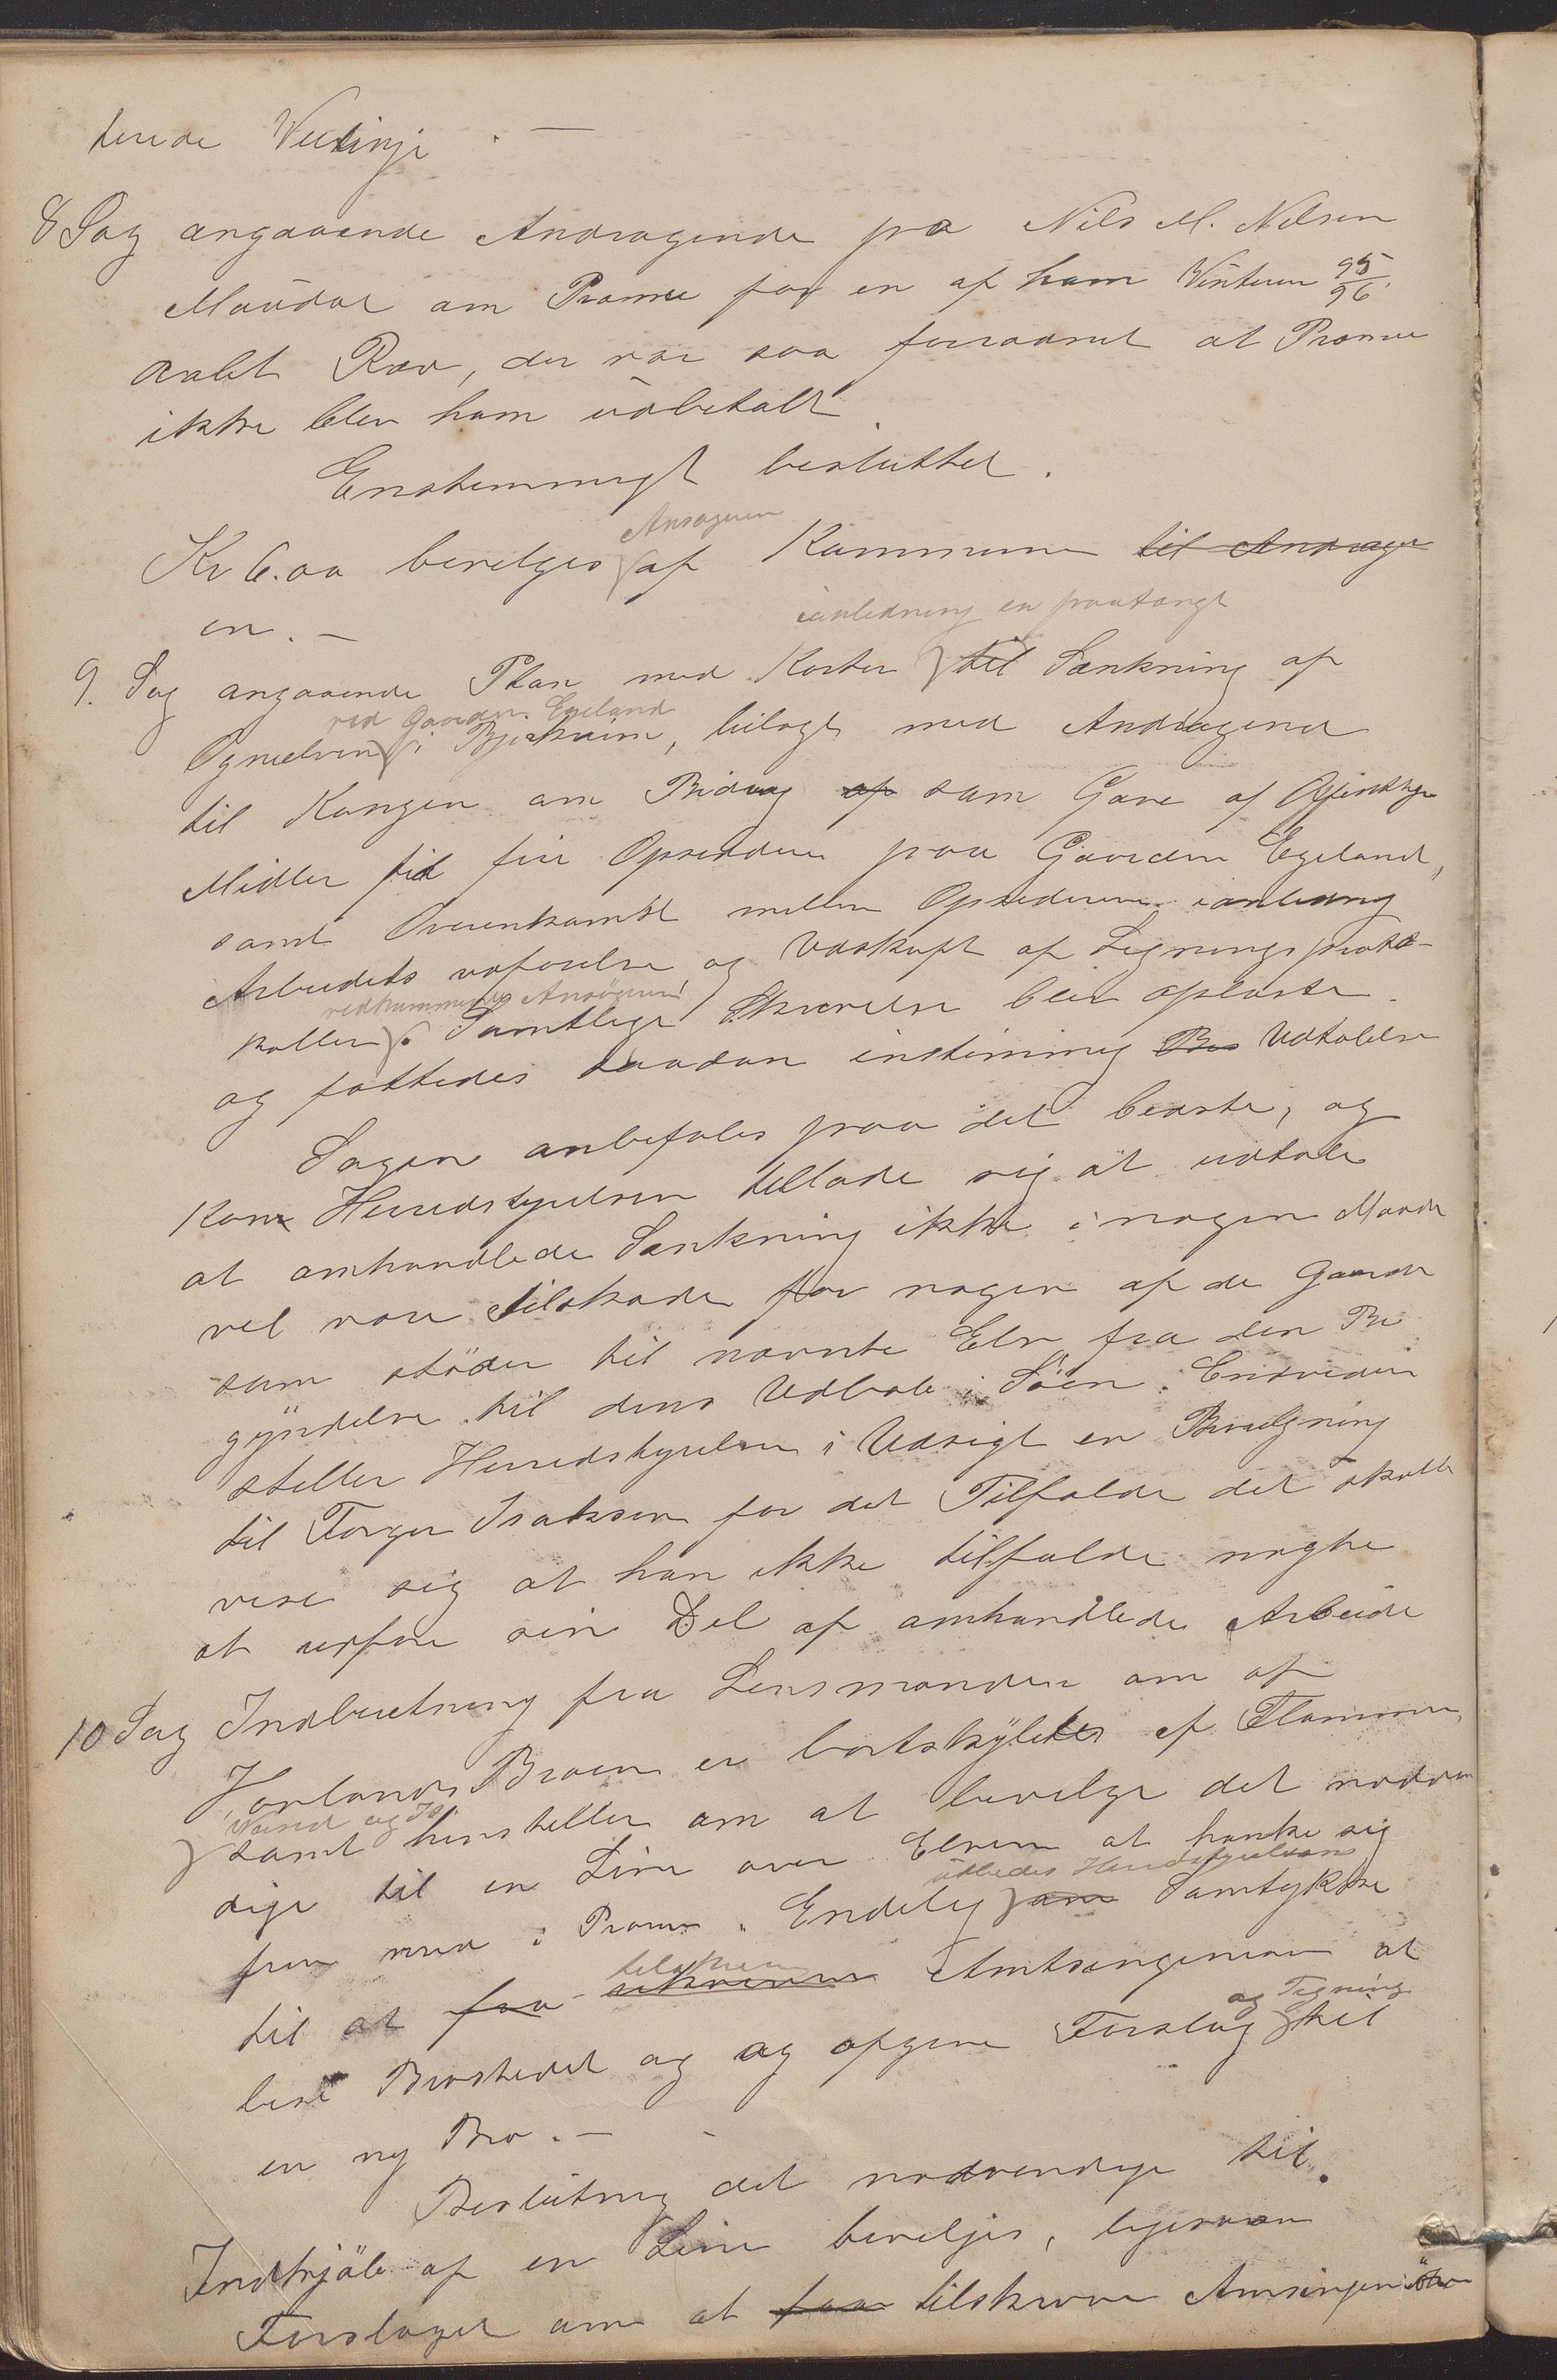 tende Veilinje . —
8 Sag angaaende Andragende fra Nils M. Nilsen
Maudal om Præmie for en af ham Vinteren 95/96
Ræv, der var saa forraadnet at Præmie
ikke blev ham udbetalt.
Enstemmigt besluttet.
Ansøgeren
Kr 6.00 bevelges af Kommunen til Andrager
en. —
ianledning en paatængt
9. Sag angaaende Plan med Karter til Sænkning af
ved Gaarden Egeland
Ognaelven i Bjerkreim, bilagt med Andragende
til Kongen om Bidrag af som Gave af Offentlige
Midler til fire Opsiddere paa Gaarden Egeland,
samt Overenkomst mellem Opsidderne ianledning
Arbeidets udførelse og Udskrift af Ligningsproto-
vedkommende Ansøgerne
kollen. Samtlige Skrivelse blev oplæste
og fattedes saadan enstemmig Bes Udtalelse
Sagen anbefales paa det beste, og
Kan Herredstyrelsen tillade sig at udtale
at omhandlede Sænkning ikke i nogen Maade
vel være tilskade for nogen af de Gaarde
som støder til nævnte Elv fra den Be
gyndelse til dens Udløb i Søen. Endvidere
stiller Herredstyrelsen i Udsigt en Bevilgning
til Torger Isaksen for det Tilfælde det skulle
vise sig at han ikke tilfulde magter
at udføre sin Del af omhandlede Arbeide
10 Sag Indberetning fra Lensmanden om at
Broen er bortskyllet af Flommen,
Vand og Is
samt henstiller om at bevilge det nødven
dige til en Line over Elven at hanke sig
udbedes Herredstyrelsen
frem med i Pram. Endelig om Samtykke
tilskrive
til at faa Amtsingeniøren at
og Tegning
bese Brostedet og og opgive Forslag til
en ny Bro. —
Beslutning det nødvendige til
Indkjøb af en Line beveljes, ligesom
Forslaget om at faa tilskrive Amsingeniøren